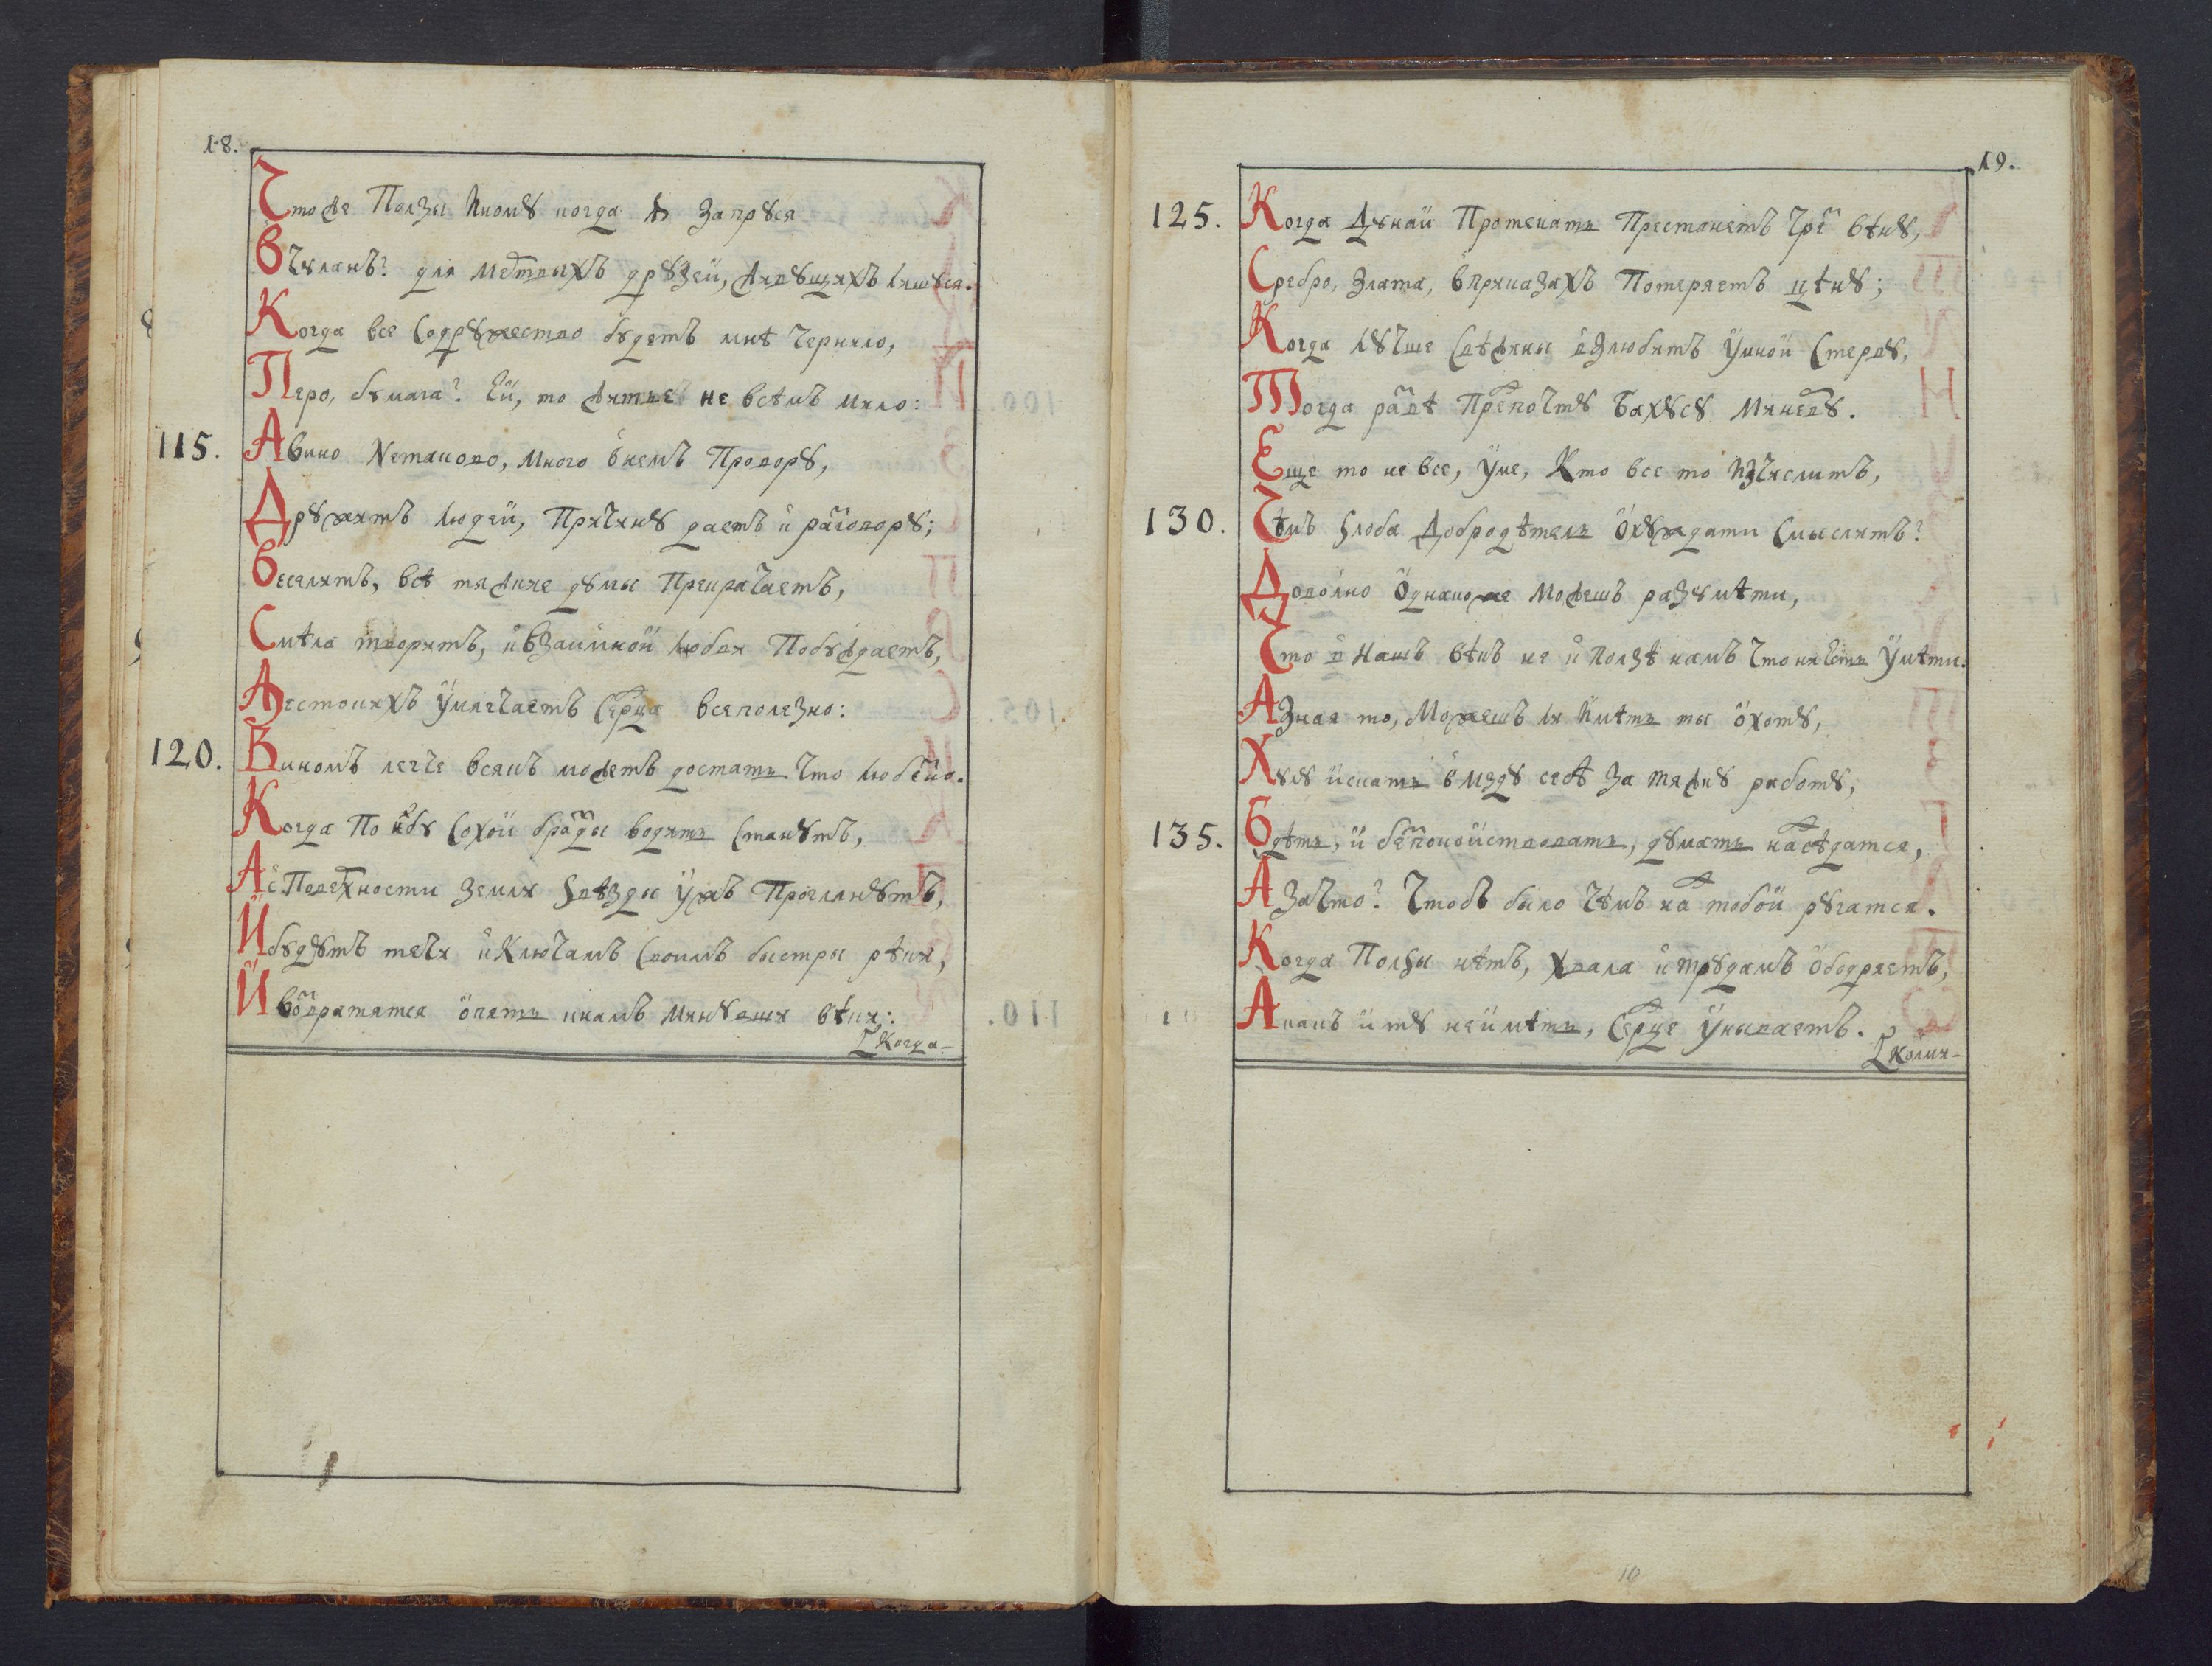 18.
Чтоже Ползы Иному когда Я запруся
Вчуланъ? для мертвыхъ друзей, живущихъ лишуся.
Когда все Содружество будетъ мнѣ чернило,
Перо, бумага? Ей, то житье не всѣмъ мило:
115. Авино Нетаково, много внемъ Провору,
Дружитъ людей, Причину даетъ и разговору;
Веселитъ, всѣ тяжкие думы Прекрачаетъ,
Смѣла творитъ, и взаимной любви Побуждаетъ,
Жестокихъ умягчаетъ Сердца всеполезно:
120. Виномъ легче всякъ можетъ достать что любезно.
Когда По небу Сохой бразды водить Станутъ,
А с Поверхности земли Звѣзды ужъ Проглянутъ,
И будутъ течи и Ключамъ Своимъ быстры рѣки,
И возвратятся опять кнамъ минувши вѣки:
[Когда-
19.
125. Когда Дунай Протекать Престанетъ чрез вѣну,
Сребро, злата, вприказахъ Потеряетъ цѣну;
Когда лутше Свѣжины взлюбитъ умной Стерву,
Тогда развѣ Предпочту Бахусу Минерву.
Еще то не все, уме, Кто все то Изчислитъ,
130. Чѣмъ Злоба Добродѣтель охуждати Смыслитъ?
Доволно Однакоже можешъ разумѣти,
Что в Нашъ вѣкъ не и ползѣ намъ что ничеть умѣти.
А Зная то, Можешъ ли Имѣть ты охоту,
Хулу искать в мзду себѣ за тяжку работу,
135. Бдѣть, и безпокойствовать, думать насѣдатся,
А Зачто? чтобъ было чѣмъ над тобой ругатся.
Когда Ползы нѣтъ, хвала и трудамъ ободряетъ,
А какъ и ту неимѣть, Сердце унываетъ.
[Коми-
10